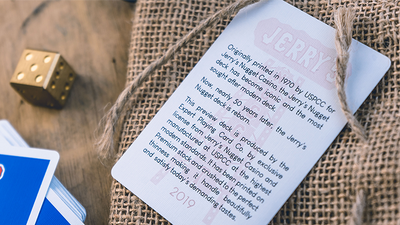 JERRY'S
Originally printed in 1970 by USPCC for
Jerry's Nugget Casino, the Jerry's Nugget
deck has become iconic and the most
sought after modern deck.
Now, nearly 50 years later, the Jerry's
Nugget deck is reborn.
This preview deck is produced by the
Expert Playing Card Co. by exclusive
license from Jerry's Nugget Casino and
manufactured at USPCC at the highest
modern standards. It has been printed on
Premium stock and crushed to the perfect
thinness, making it handle beautifully
and satisfy today's demanding tastes.
2019